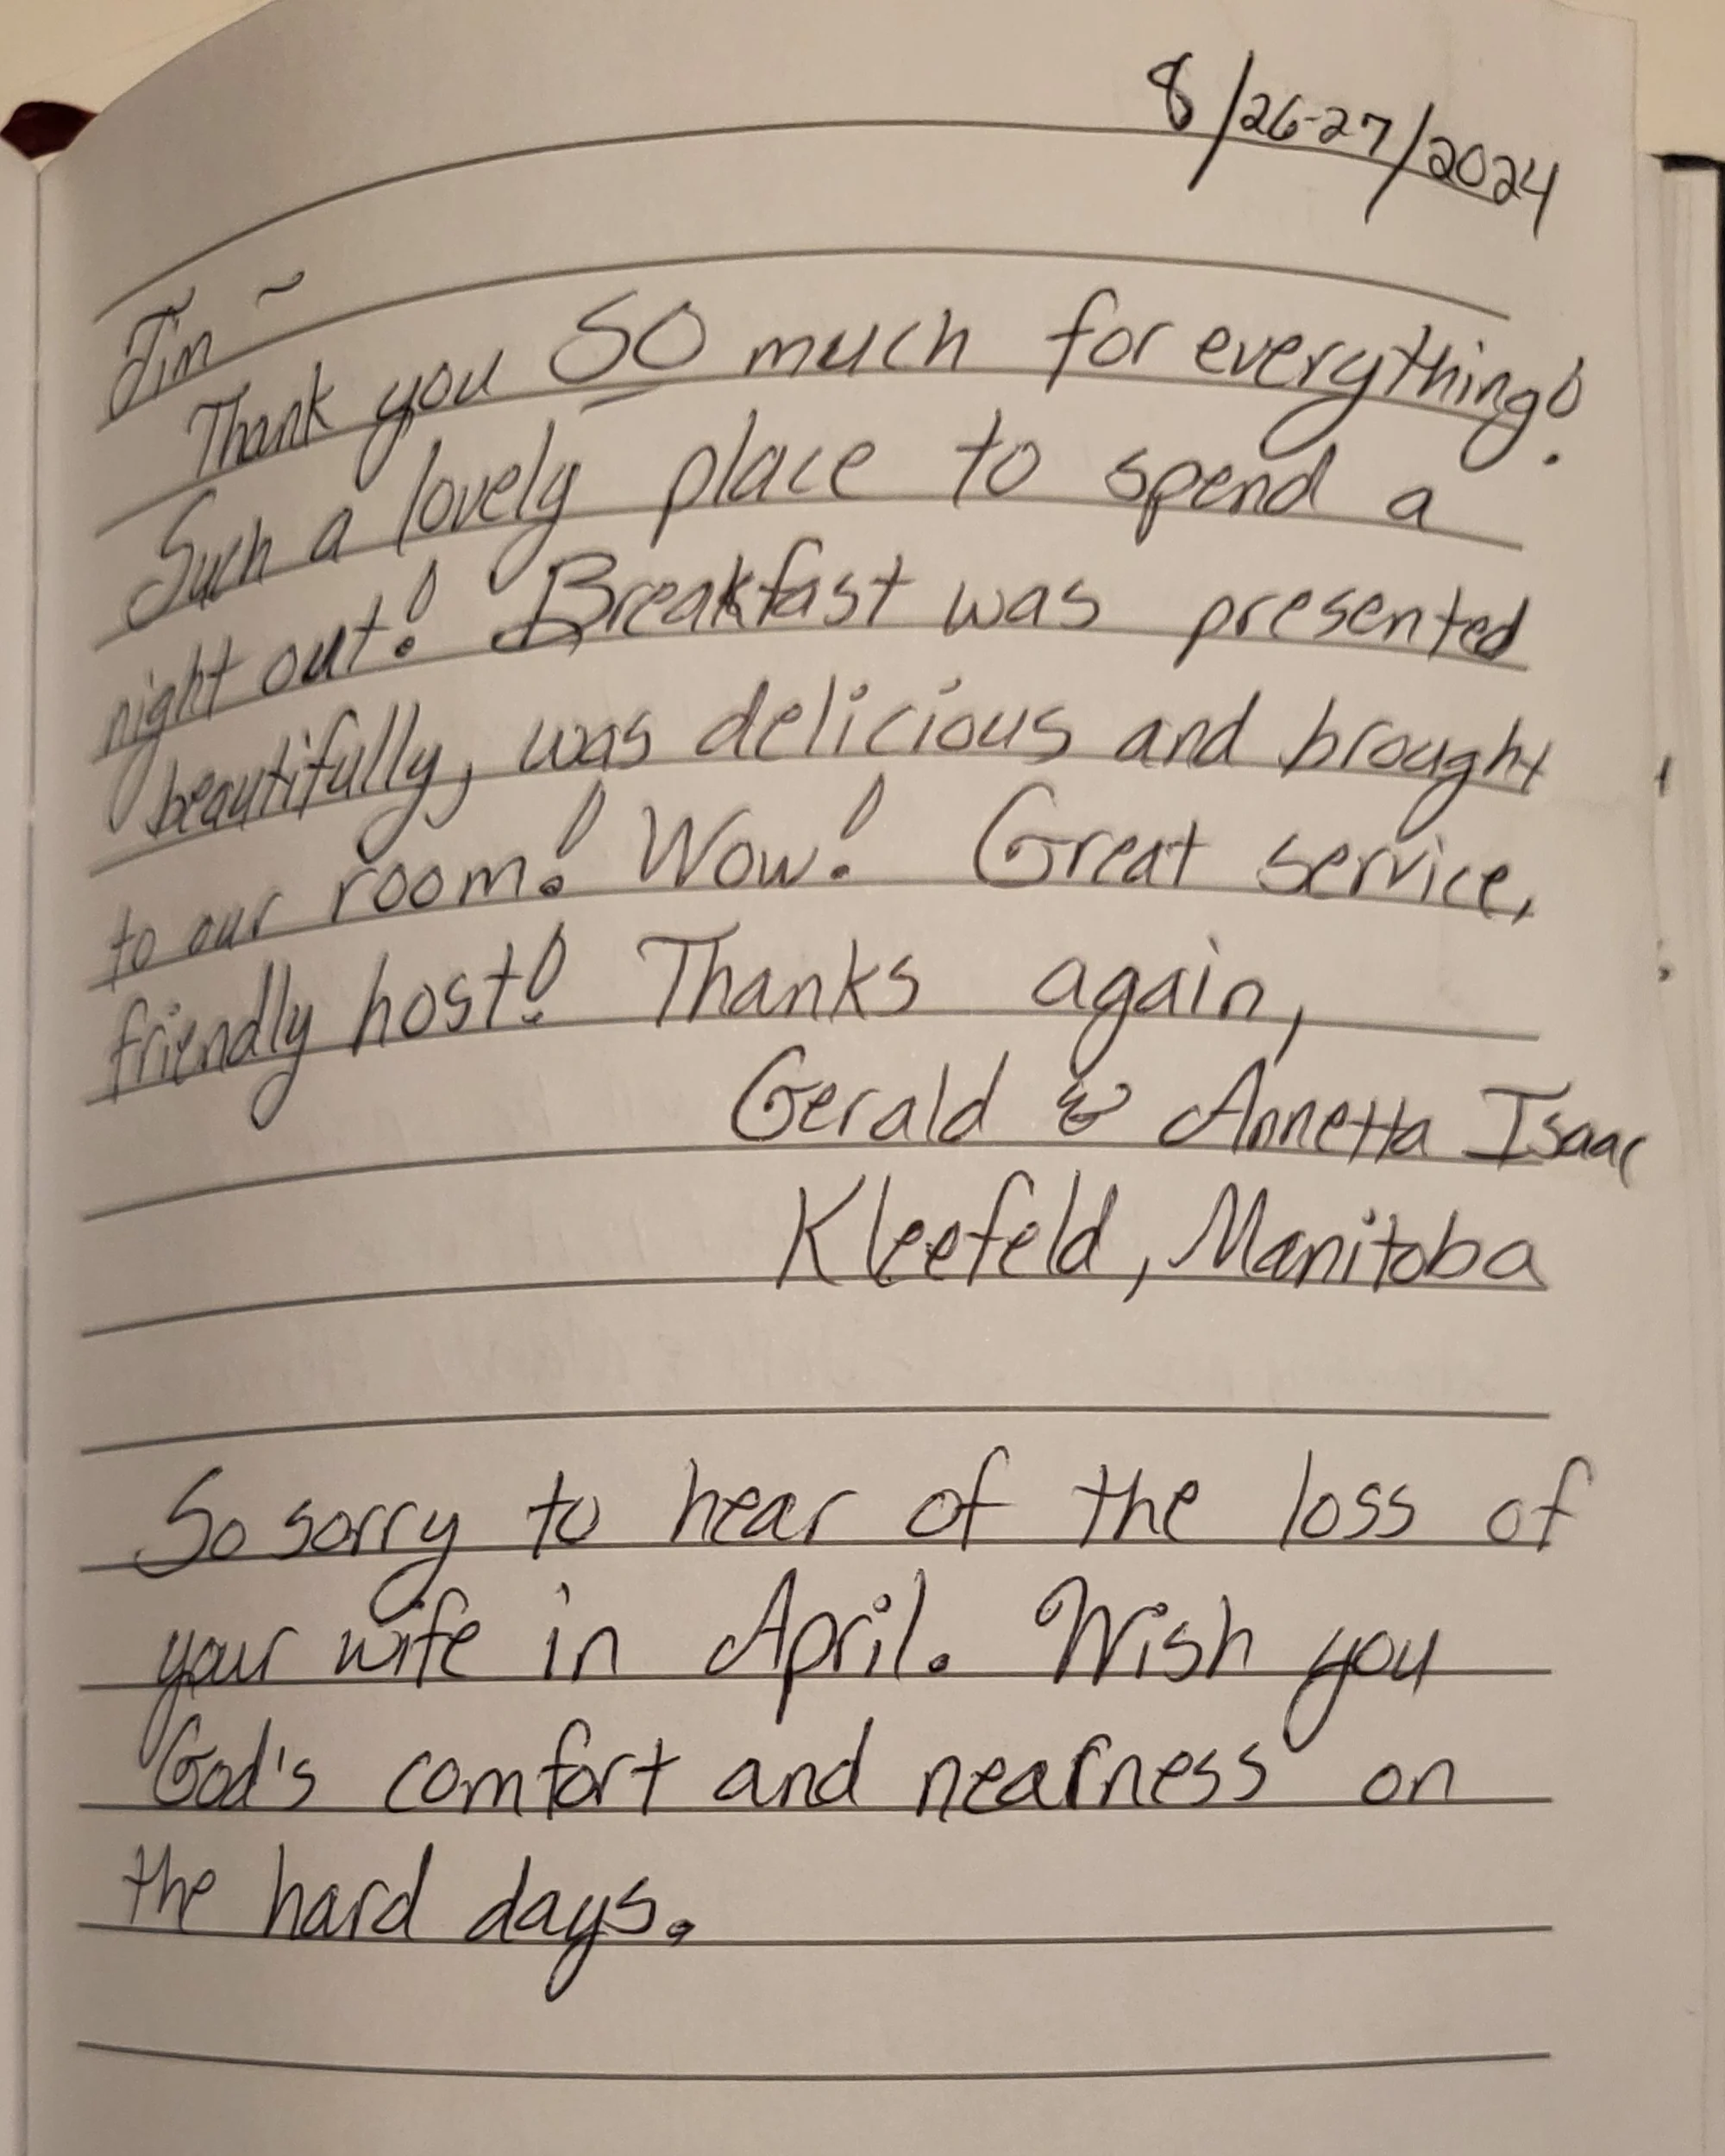 8/26-27/2024
Jim ~
Thank you SO much for everything!
Such a lovely place to spend a
night out! Breakfast was presented
beautifully, was delicious and brought
to our room! Wow! Great service,
friendly host! Thanks again,
Gerald & Annetta Isaac
Kleefeld, Manitoba
So sorry to hear of the loss of
your wife in April. Wish you
God's comfort and nearness on
the hard days.